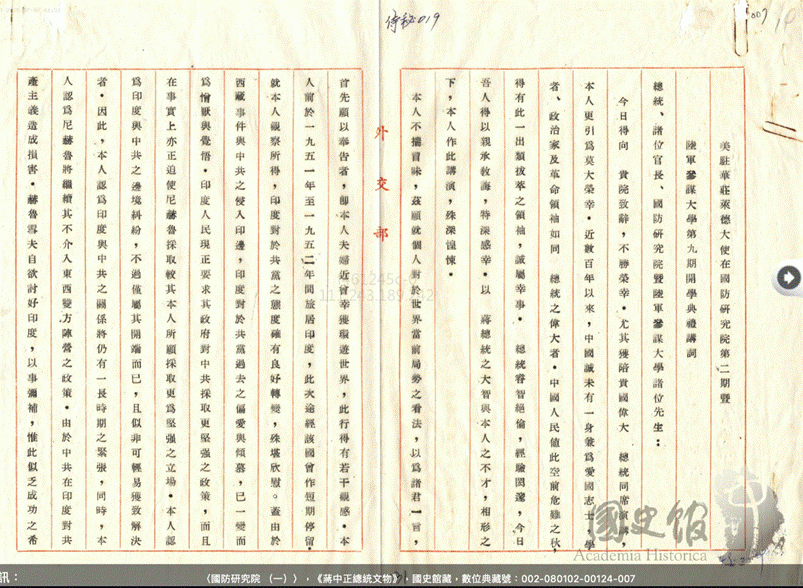 侍秘019
007
美駐華莊萊德大使在國防研究院第二期暨
陸軍參謀大學第九期開學典禮講詞
總統、諸位官長、國防研究院暨陸軍參謀大學諸位先生：
今日得向 貴院致辭，不勝榮幸。尤其獲陪貴國偉大 總統同席演講，
本人更引爲莫大榮幸。近數百年以來，中國誠未有一身兼爲愛國志士、學
者、政治家及革命領袖如同 總統之偉大者。中國人民值此空前危難之秋，
得有此一出類拔萃之領袖，誠屬幸事。 總統睿智絕倫，經驗閎邃，今日
吾人得以親承教誨，特深感幸。以 蔣總統之大智與本人之不才，相形之
下，本人作此講演，殊深惶悚。
本人不揣冒昧，茲願就個人對於世界當前局勢之看法，以爲諸君一言，
外交部
首先願以奉告者，卽本人夫婦近曾幸獲環遊世界，此行得有若干觀感。本
人前於一九五一年至一九五二年間旅居印度，此次途經該國曾作短期停留，
就本人觀察所得，印度對於共黨之態度確有良好轉變，殊堪欣慰。蓋由於
西藏事件與中共之侵入印邊，印度對於共黨過去之偏愛與傾慕，已一變而
爲憎厭與覺悟。印度人民現正要求其政府對中共採取更堅强之政策，而且
在事實上亦正迫使尼赫魯採取較其本人所願採取更爲堅强之立場。本人認
爲印度與中共之邊境糾紛，不過僅屬其開端而已，且似非可輕易獲致解決
者。因此，本人認爲印度與中共之關係將仍有一長時期之緊張，同時，本
人認爲尼赫魯將繼續其不介入東西雙方陣營之政策。由於中共在印度對共
產主義造成損害。赫魯雪夫自欲討好印度，以事彌補，惟此似乏成功之希
國史館
Academia Historica
訊：
〈國防研究院（一）〉，《蔣中正總統文物》，國史館藏，數位典藏號：002-080102-00124-007